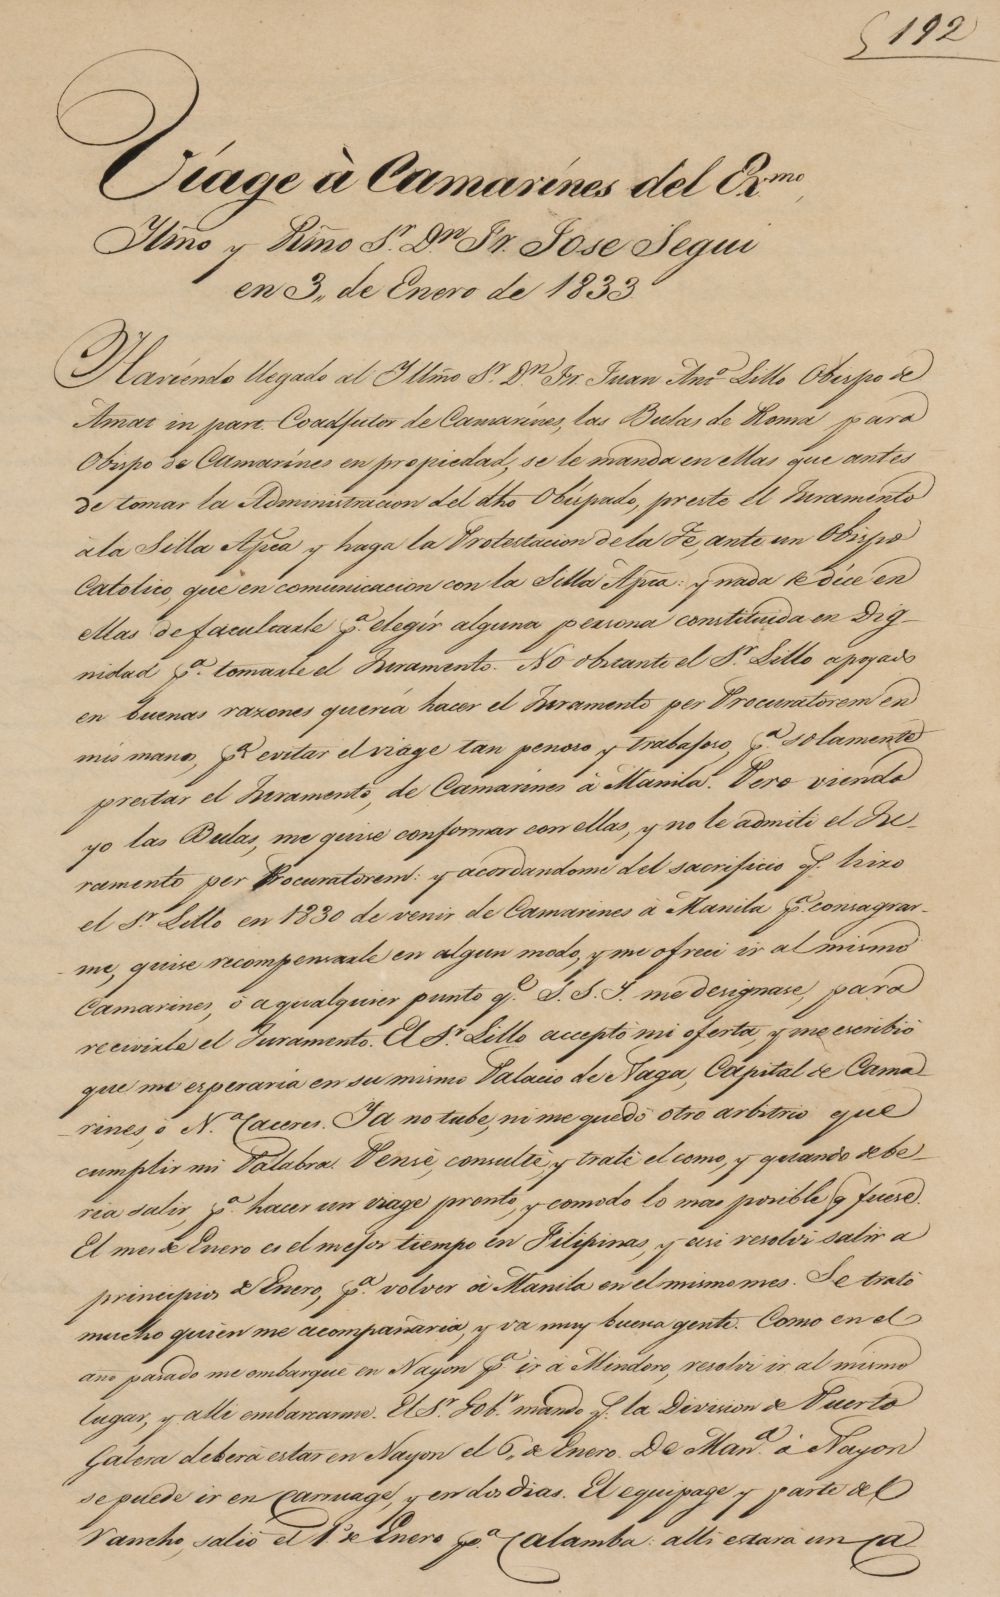 192
Viage à Camarínes del Ex.mo,
Ylm̃o y Rm̃o S.r D.n Fr. Jose Segui
en 3,, de Enero de 1833.
Haviendo llegado al Yllm̃o S.r D.n Fr. Juan Ant.o Lillo Obispo de
Amat in part. Coadjutor de Camarínes, las Bulas de Roma para
Obispo de Camarínes en propiedad, se le manda en ellas que antes
de tomar la Administracion del dho Obispado, preste el Juramento
à la Silla Apca y haga la Protestacion de la Fe, ante un Obispo
Catolico, que en comunicacion con la Silla Apca: y nada se dice en
ellas de facultarle p.a elegír alguna persona constituida en Dig-
nidad p.a tomarle el Juramento. No obstante el S.r Lillo apoyado
en buenas razones quería hacer el Juramento per Procuratorem en
mis manos, p.a evitar el viage tan penoso y trabajoso, p.a solamente
prestar el Juramento, de Camarines à Manila. Pero viendo
yo las Bulas, me quise conformar con ellas, y no le admiti el Ju-
ramento per Procuratorem: y acordandome del sacrificio q.e hizo
el S.r Lillo en 1830 de venir de Camarines à Manila p.a consagrar-
me, quise recompensarle en algun modo, y me ofreci ir al mismo
Camarines, ò a qualquier punto q.e S. S. Y. me designase, para
recivirle el Juramento. El S.r Lillo acceptò mi oferta, y me escribiò
que me esperaria en su mismo Palacio de Naga, Capital de Cama-
rines, ò N.a Caceres. Ya no tube, ni me quedò otro arbitrio que
cumplir mi Palabra. Pensè, consultè, y tratè el como, y quando debe-
ria salir, p.a hacer un viage pronto, y comodo lo mas posible q fuese.
El mes de Enero es el mejor tiempo en Filipinas, y asi resolvi salir a
principios de Enero, p.a volver à Manila en el mismo mes. Se tratò
mucho quien me acompañaria, y va muy buena gente. Como en el
año pasado me embarque en Nayon p.a ir à Mindoro, resolvi ir al mismo
lugar, y alli embarcarme. El S.r Gob.r mando q.e la Division de Puerto
Galera deberà estar en Nayon el 6,, de Enero. De Man.a à Nayon
se puede ir en carruage, y en dos dias. El equipage y parte del
rancho, saliò el 1.o de Enero p.a Calamba: alli estarà un Ca